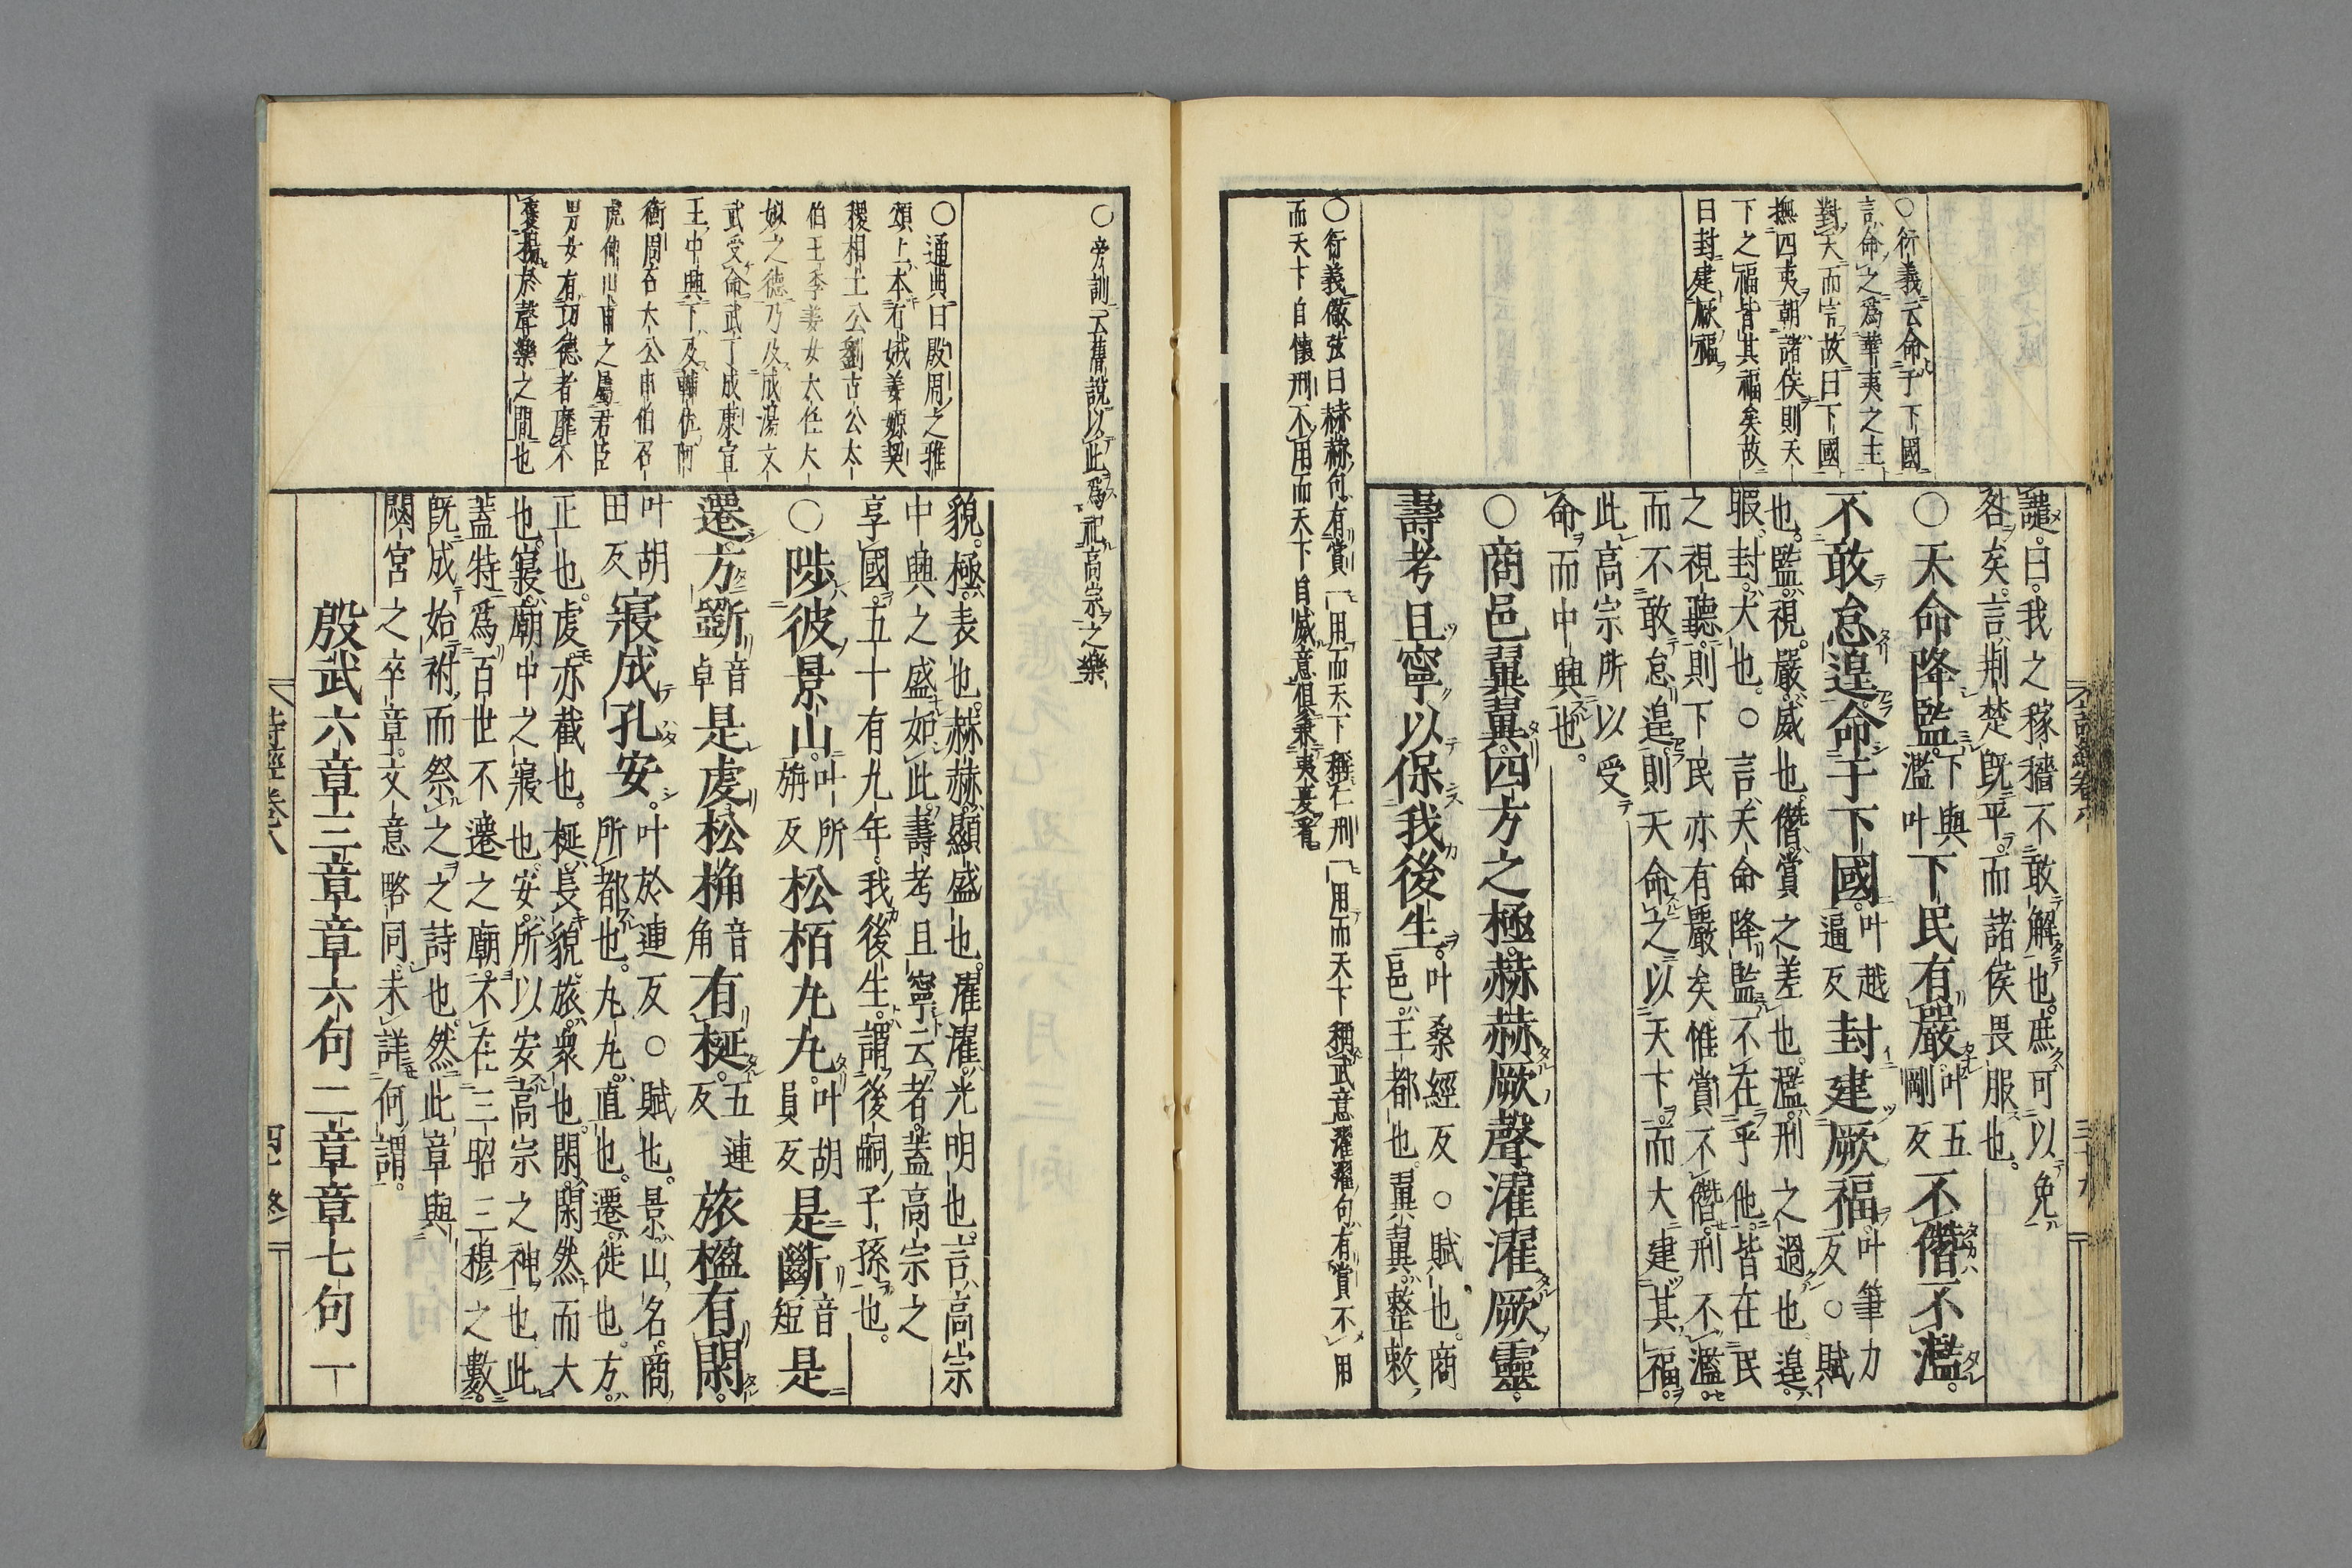 譴曰我之稼穡不敢解也庶可以免
咎矣言荆楚既平而諸侯畏服也
○天命降監下與濫叶下民有嚴叶五剛反不僭不濫
不敢怠遑命于下國叶越逼反封建厥福叶筆力反○賦
也監視嚴威也僭賞之差也濫刑之過也遑
暇封大也○言天命降監不在乎他皆在民
之視聽則下民亦有嚴矣惟賞不僭刑不濫
而不敢怠遑則天命之以天下而大建其福
此高宗所以受
命而中興也
○商邑翼翼四方之極赫赫厥聲濯濯厥靈
壽考且寧以保我後生叶桑經反○賦也商邑王都也翼翼整敕
○衍義云命于下國
言命之爲華夷之主
對天而言故曰下國
撫四夷朝諸侯則天
下之福皆其福矣故
曰封建厥福
○衍義徽弦曰赫赫句有賞一用而天下稱仁刑一用而天下稱武意濯濯句有賞不用
而天下自懷刑不用而天下自威意俱兼夷夏看
詩經卷八
○旁訓云舊説以此爲祀高宗之樂
○通典曰殷周之雅
頌上本有娀姜嫄契
稷相土公劉古公太
伯王季姜女太任太
姒之德乃及成湯文
武受命武丁成康宣
王中興下及輔佐阿
衡周召太公申伯召
虎仲山甫之屬君臣
男女有功德者靡不
襃揚於聲樂之間也
貌極表也赫赫顯盛也濯濯光明也言高宗
中興之盛如此壽考且寧云者蓋高宗之
享國五十有九年我後生謂後嗣子孫也
○陟彼景山叶所旃反松栢丸丸叶胡員反是斷音短是
遷方斵音卓是虔松桷音角有梴五連反旅楹有閑
叶胡田反寢成孔安叶於連反○賦也景山名商
所都也丸丸直也遷徙也方
正也虔亦截也梴長貌旅衆也閑閑然而大
也寢廟中之寢也安所以安高宗之神也此
蓋特爲百世不遷之廟不在三昭三穆之數
既成始祔而祭之之詩也然此章與
閟宮之卒章文意略同未詳何謂
殷武六章三章章六句二章章七句一
詩經卷八
四十終